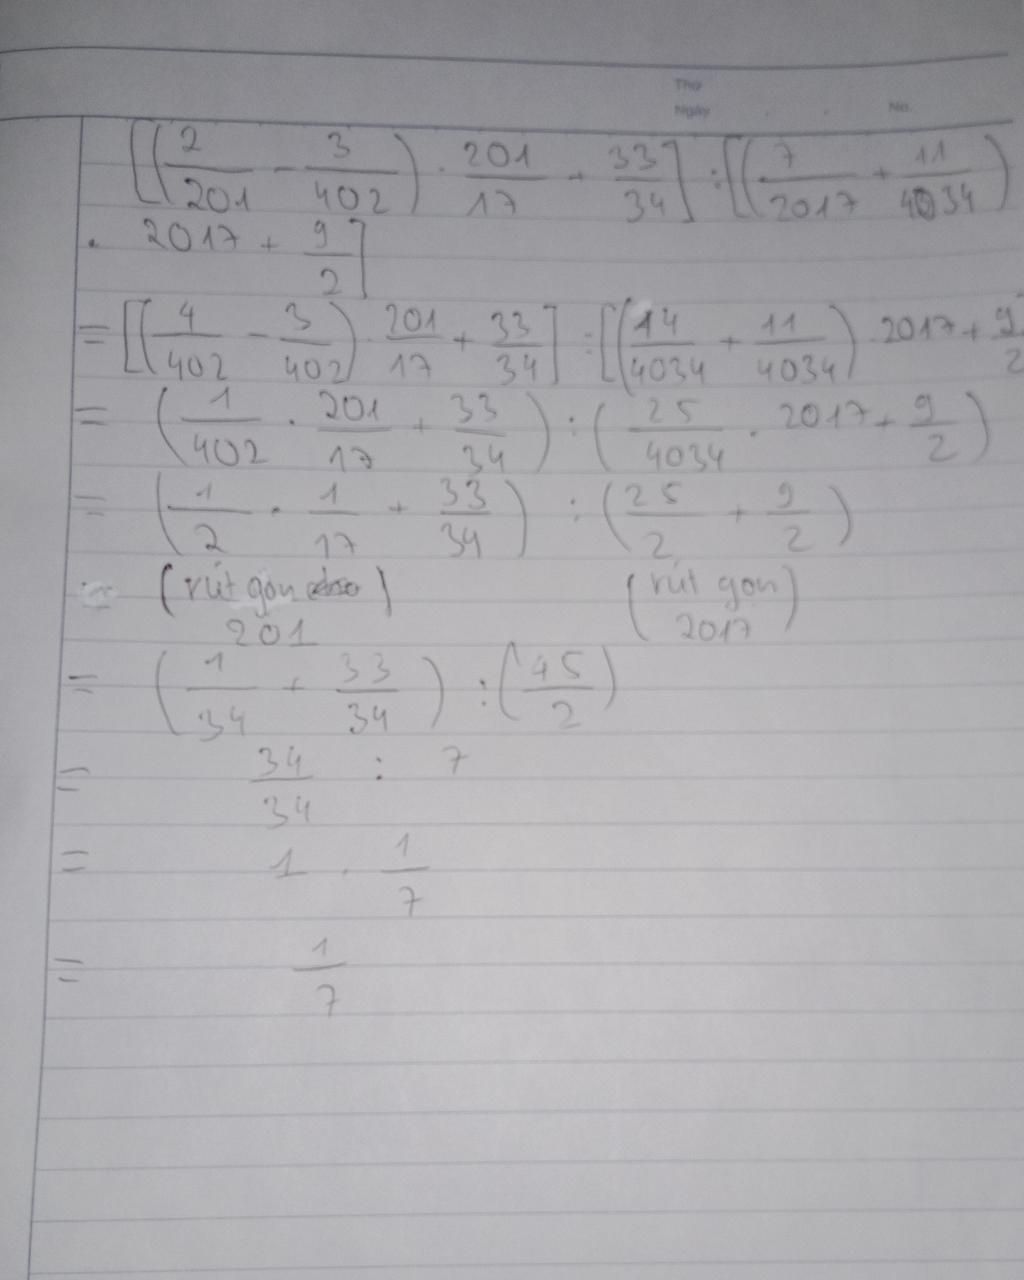 Thứ
Ngày . . No.
[(2/201 - 3/402) . 201/17 + 33/34] : [(7/2017 + 11/4034)
. 2017 + 9/2]
= [(4/402 - 3/402) . 201/17 + 33/34] : [(14/4034 + 11/4034) . 2017 + 9/2
= (1/402 . 201/17 + 33/34) : (25/4034 . 2017 + 9/2)
= (1/2 . 1/17 + 33/34) : (25/2 + 9/2)
(rút gọn 201) (rút gọn 2017)
= (1/34 + 33/34) : (45/2)
= 34/34 : 7
= 1 . 1/7
= 1/7